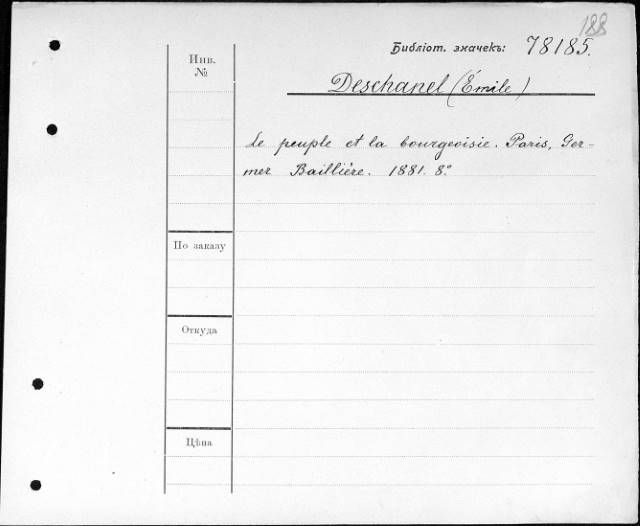 188
Библіот. значекъ: 78185.
Инв.
№
Deschanel (Émile)
Le peuple et la bourgeoisie. Paris, Ger-
mer Baillière. 1881. 8.º
По заказу
Откуда
Цѣна